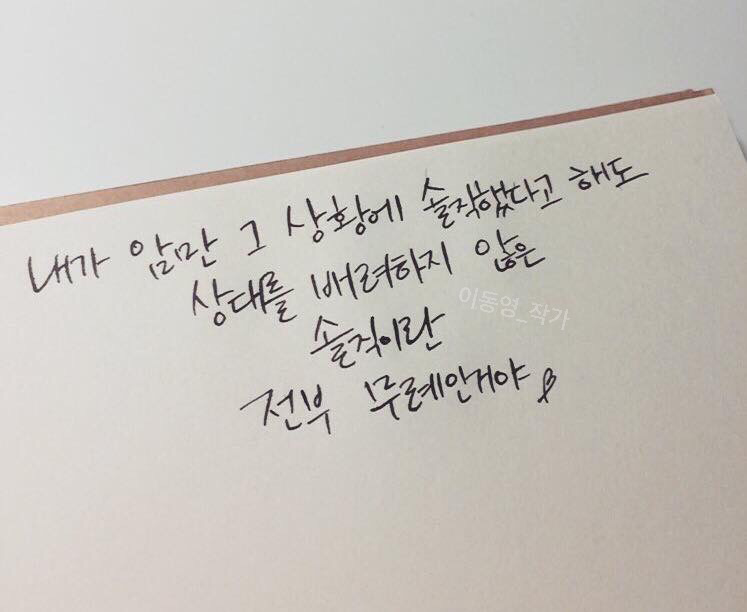 내가 암만 그 상황에 솔직했다고 해도
상대를 배려하지 않은
이동영_작가
솔직이란
전부 무례인거야